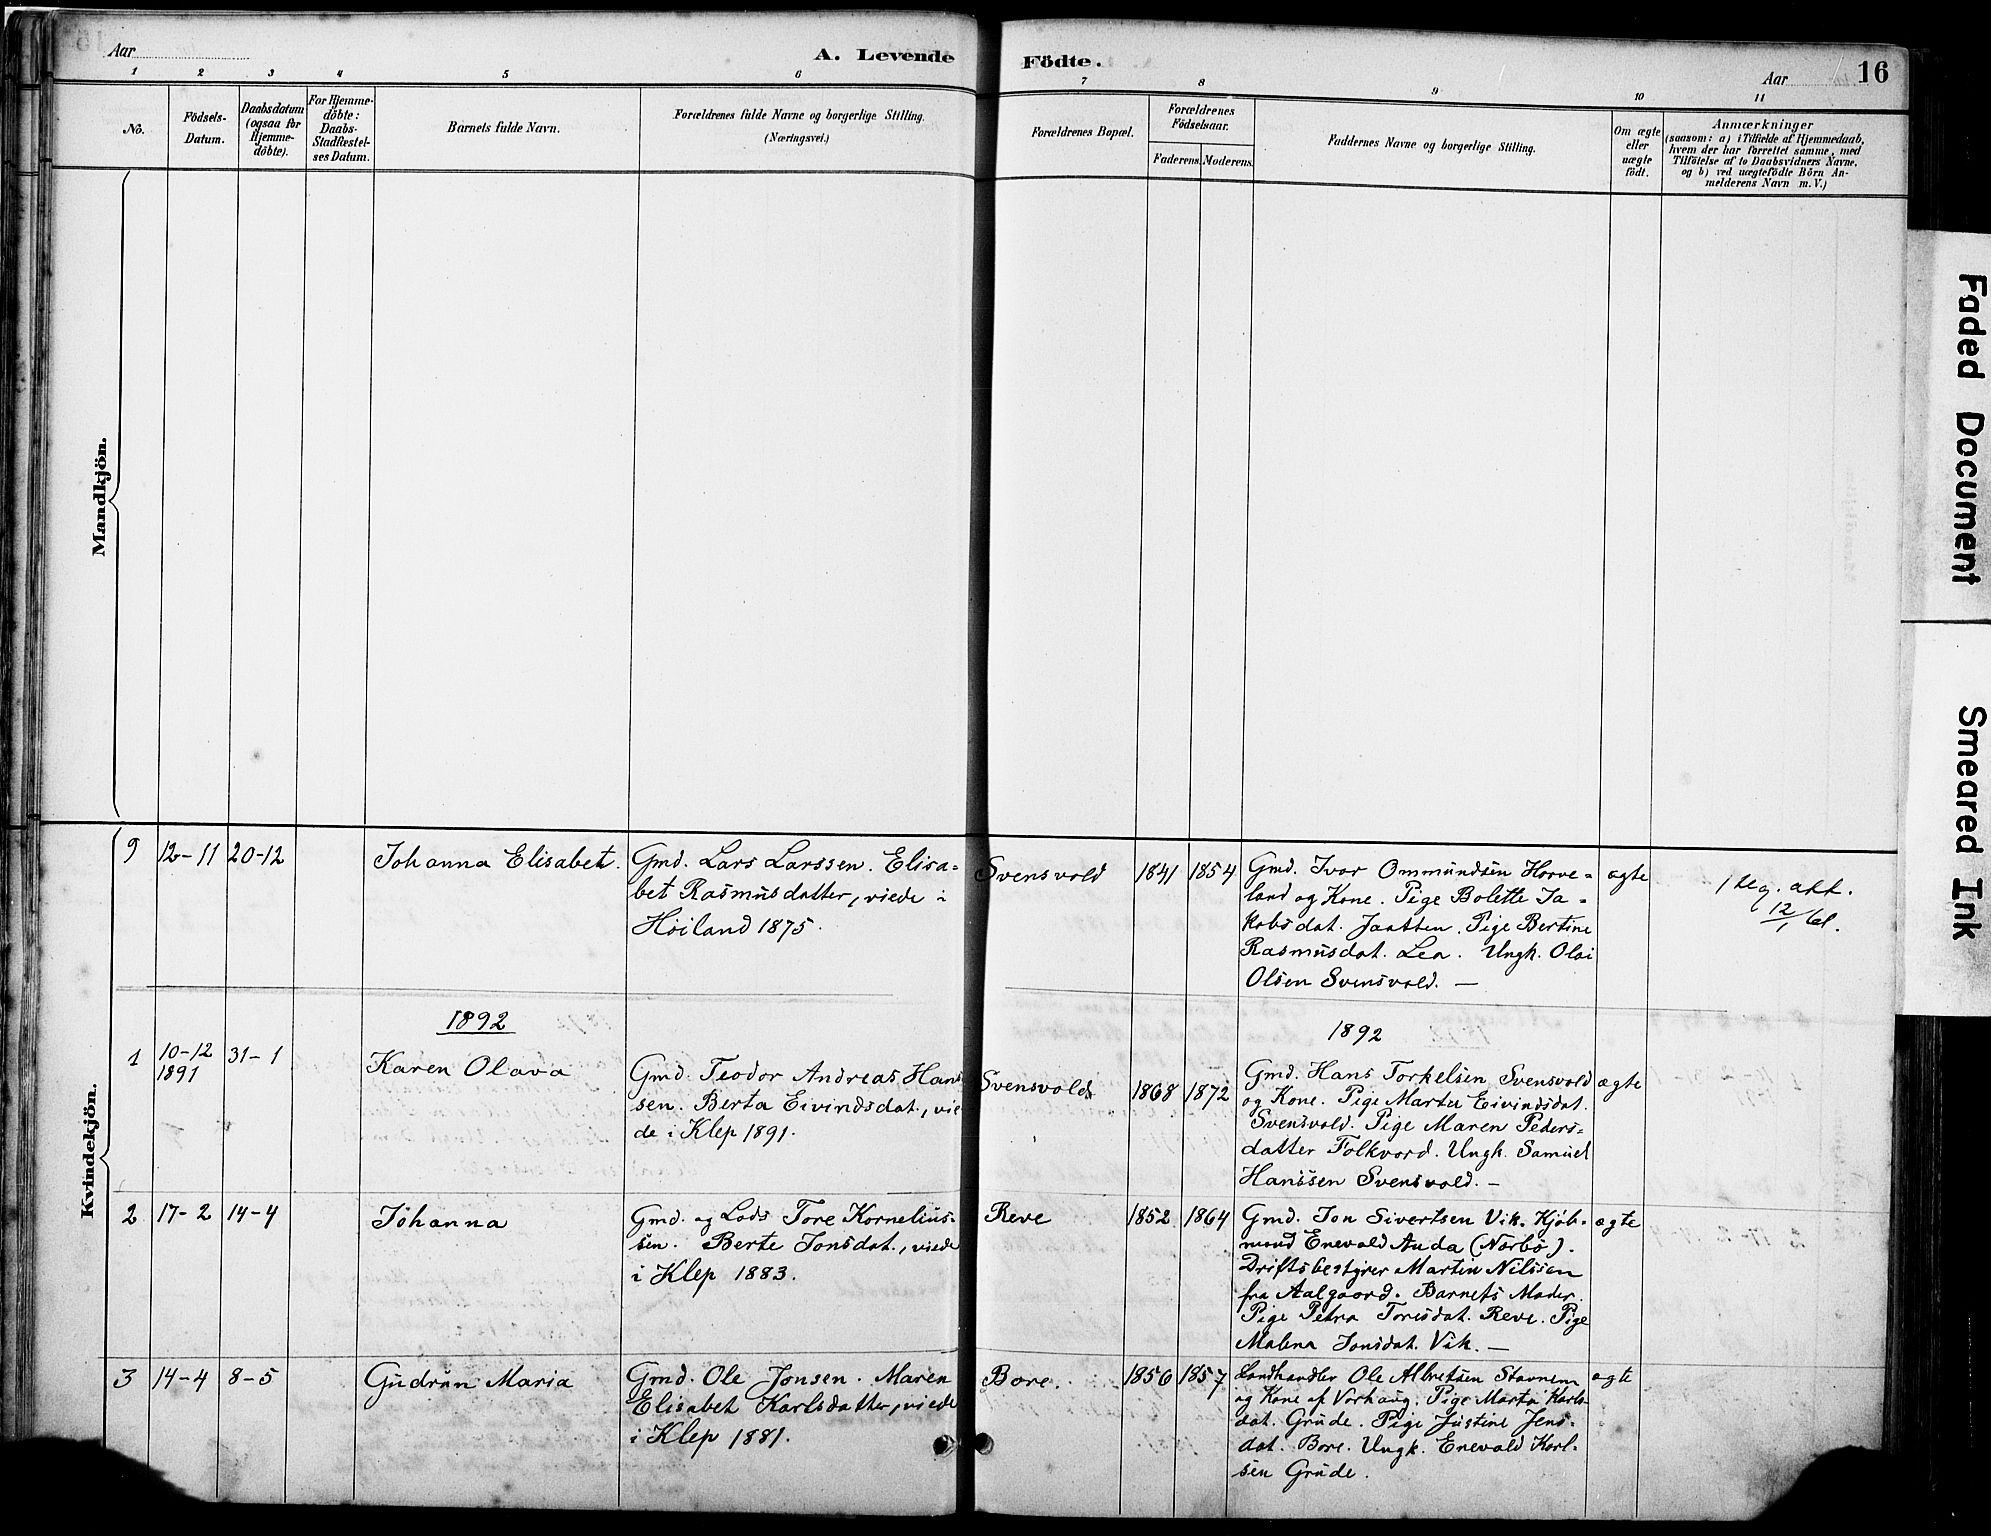 Aar
A. Levende Födte.
Aar 16
1 2 3 4 5 6 7 8 9 10 11
No.
Födsels-
Datum.
Daabsdatum
(ogsaa for
Hjemme-
döbte).
For Hjemme-
döbte:
Daabs-
Stadfæstel-
ses Datum.
Barnets fulde Navn.
Forældrenes fulde Navne og borgerlige Stilling.
(Næringsvei.)
Forældrenes Bopæl.
Forældrenes
Födselsaar.
Faderens. Moderens.
Faddernes Navne og borgerlige Stilling.
Om ægte
eller
uægte
födt.
Anmærkninger
(saasom: a) i Tilfælde af Hjemmedaab,
hvem der har forrettet samme, med
Tilföielse af to Daabsvidners Navne,
og b) ved uægtefödte Börn An-
melderens Navn m. V.)
Mandkjön.
Kvindekjön.
9 12-11 20-12
Johanna Elisabet.
Gmd. Lars Larssen. Elisa-
bet Rasmusdatter, viede i
Höiland 1875.
Svensvold 1841 1854
Gmd. Ivar Ommundsen Horve-
land og Kone. Pige Bolette Ja-
kobsdat. Jaatten. Pige Bertine
Rasmusdat. Lea. Ungk. Olai
Olsen Svensvold. —
ægte
1 leg. att.
12/1 61.
1892
1892
1 10-12
1891
31-1
Karen Olava
Gmd. Teodor Andreas Hans
sen. Berta Eivindsdat., vie
de i Klep 1891.
Svensvold 1868 1872
Gmd. Hans Torkelsen Svensvold
og Kone. Pige Marta Eivindsdat.
Svensvold. Pige Maren Peders-
datter Folkvord. Ungk. Samuel
Hanssen Svensvold. —
ægte
2 17-2 14-4
Johanna
Gmd. og Lods Tore Kornelius-
sen. Berte Jonsdat., viede
i Klep 1883.
Reve 1852 1864
Gmd. Jon Sivertsen Vik. Kjöb-
mand Enevald Auda (Nærbö).
Driftsbestyrer Martin Nilssen
fra Aalgaard. Barnets Moder.
Pige Petra Toresdat. Reve. Pige
Malena Jonsdat. Vik. —
ægte
3 14-4 8-5
Gudrun Maria
Gmd. Ole Jonsen. Maren
Elisabet Karlsdatter, viede
i Klep 1881.
Bore. 1856 1857
Landhandler Ole Albretsen Stavnem
og Kone af Varhaug. Pige Marta Karls-
dat. Grude. Pige Justine Jens-
dat. Bore. Ungk. Enevald Karl-
sen Grude.
ægte
Faded Document
Smeared Ink